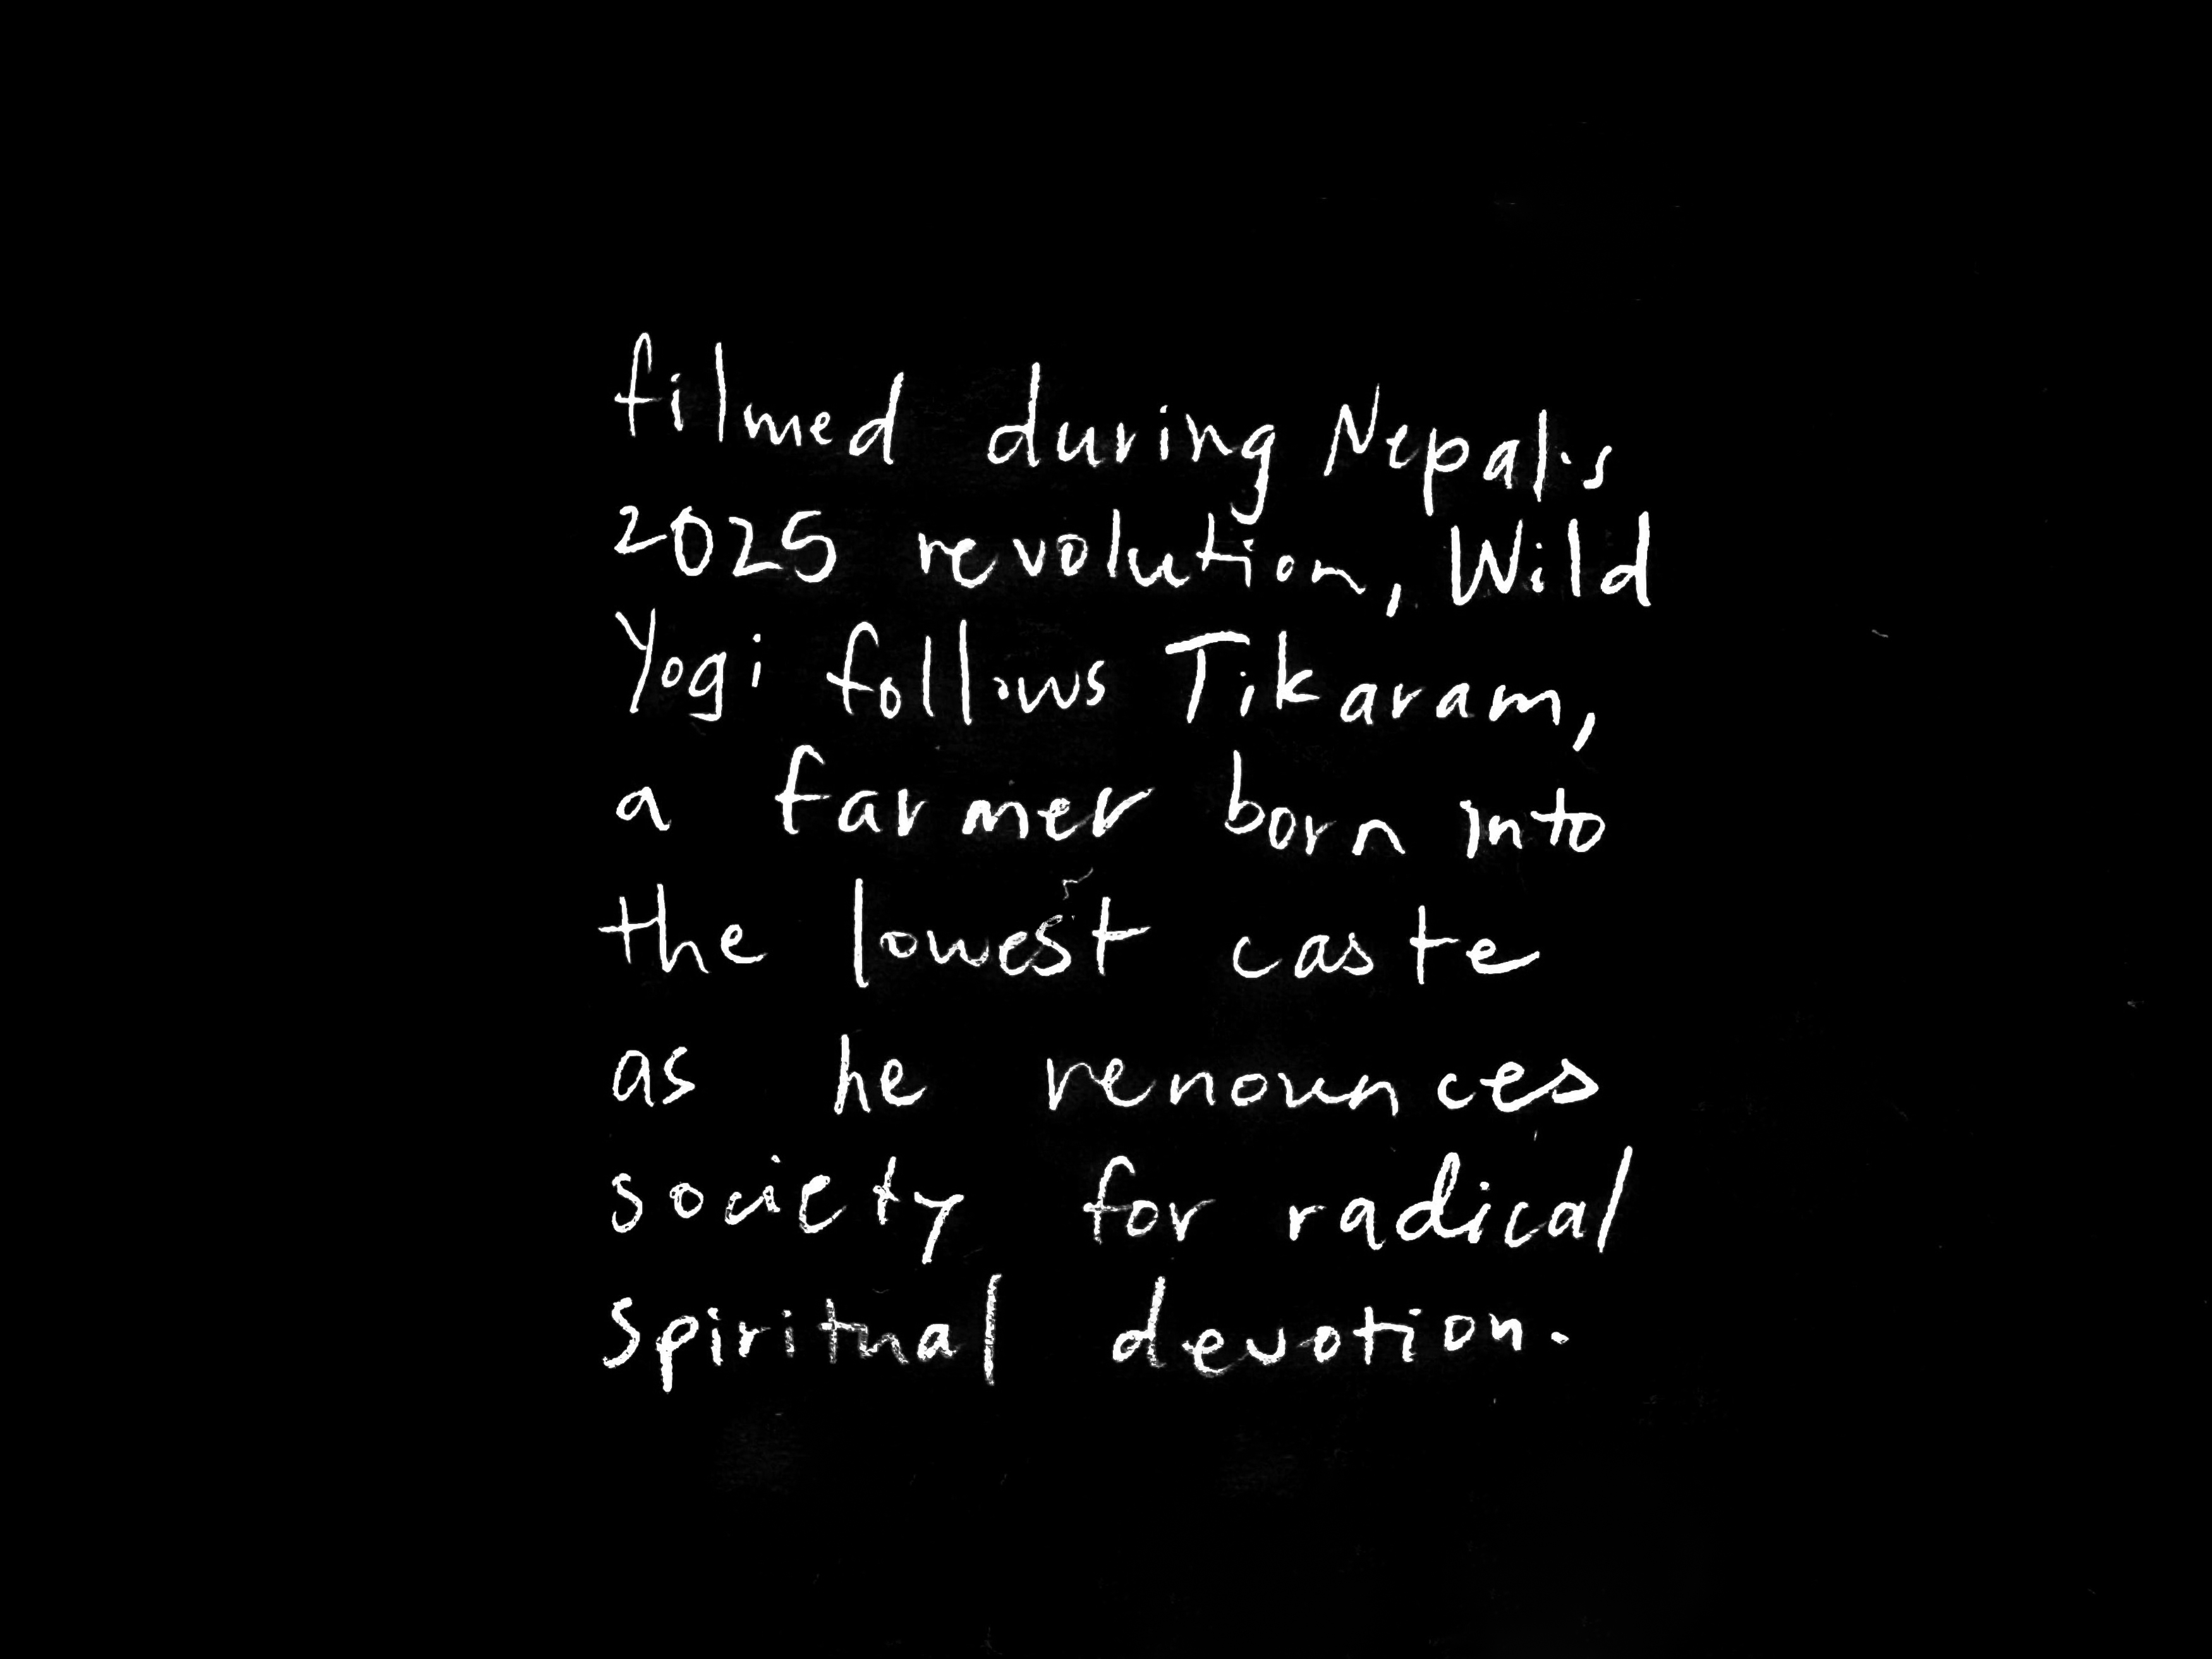 filmed during Nepal's
2025 revolution, Wild
Yogi follows Tikaram,
a farmer born into
the lowest caste
as he renounces
society for radical
spiritual devotion.